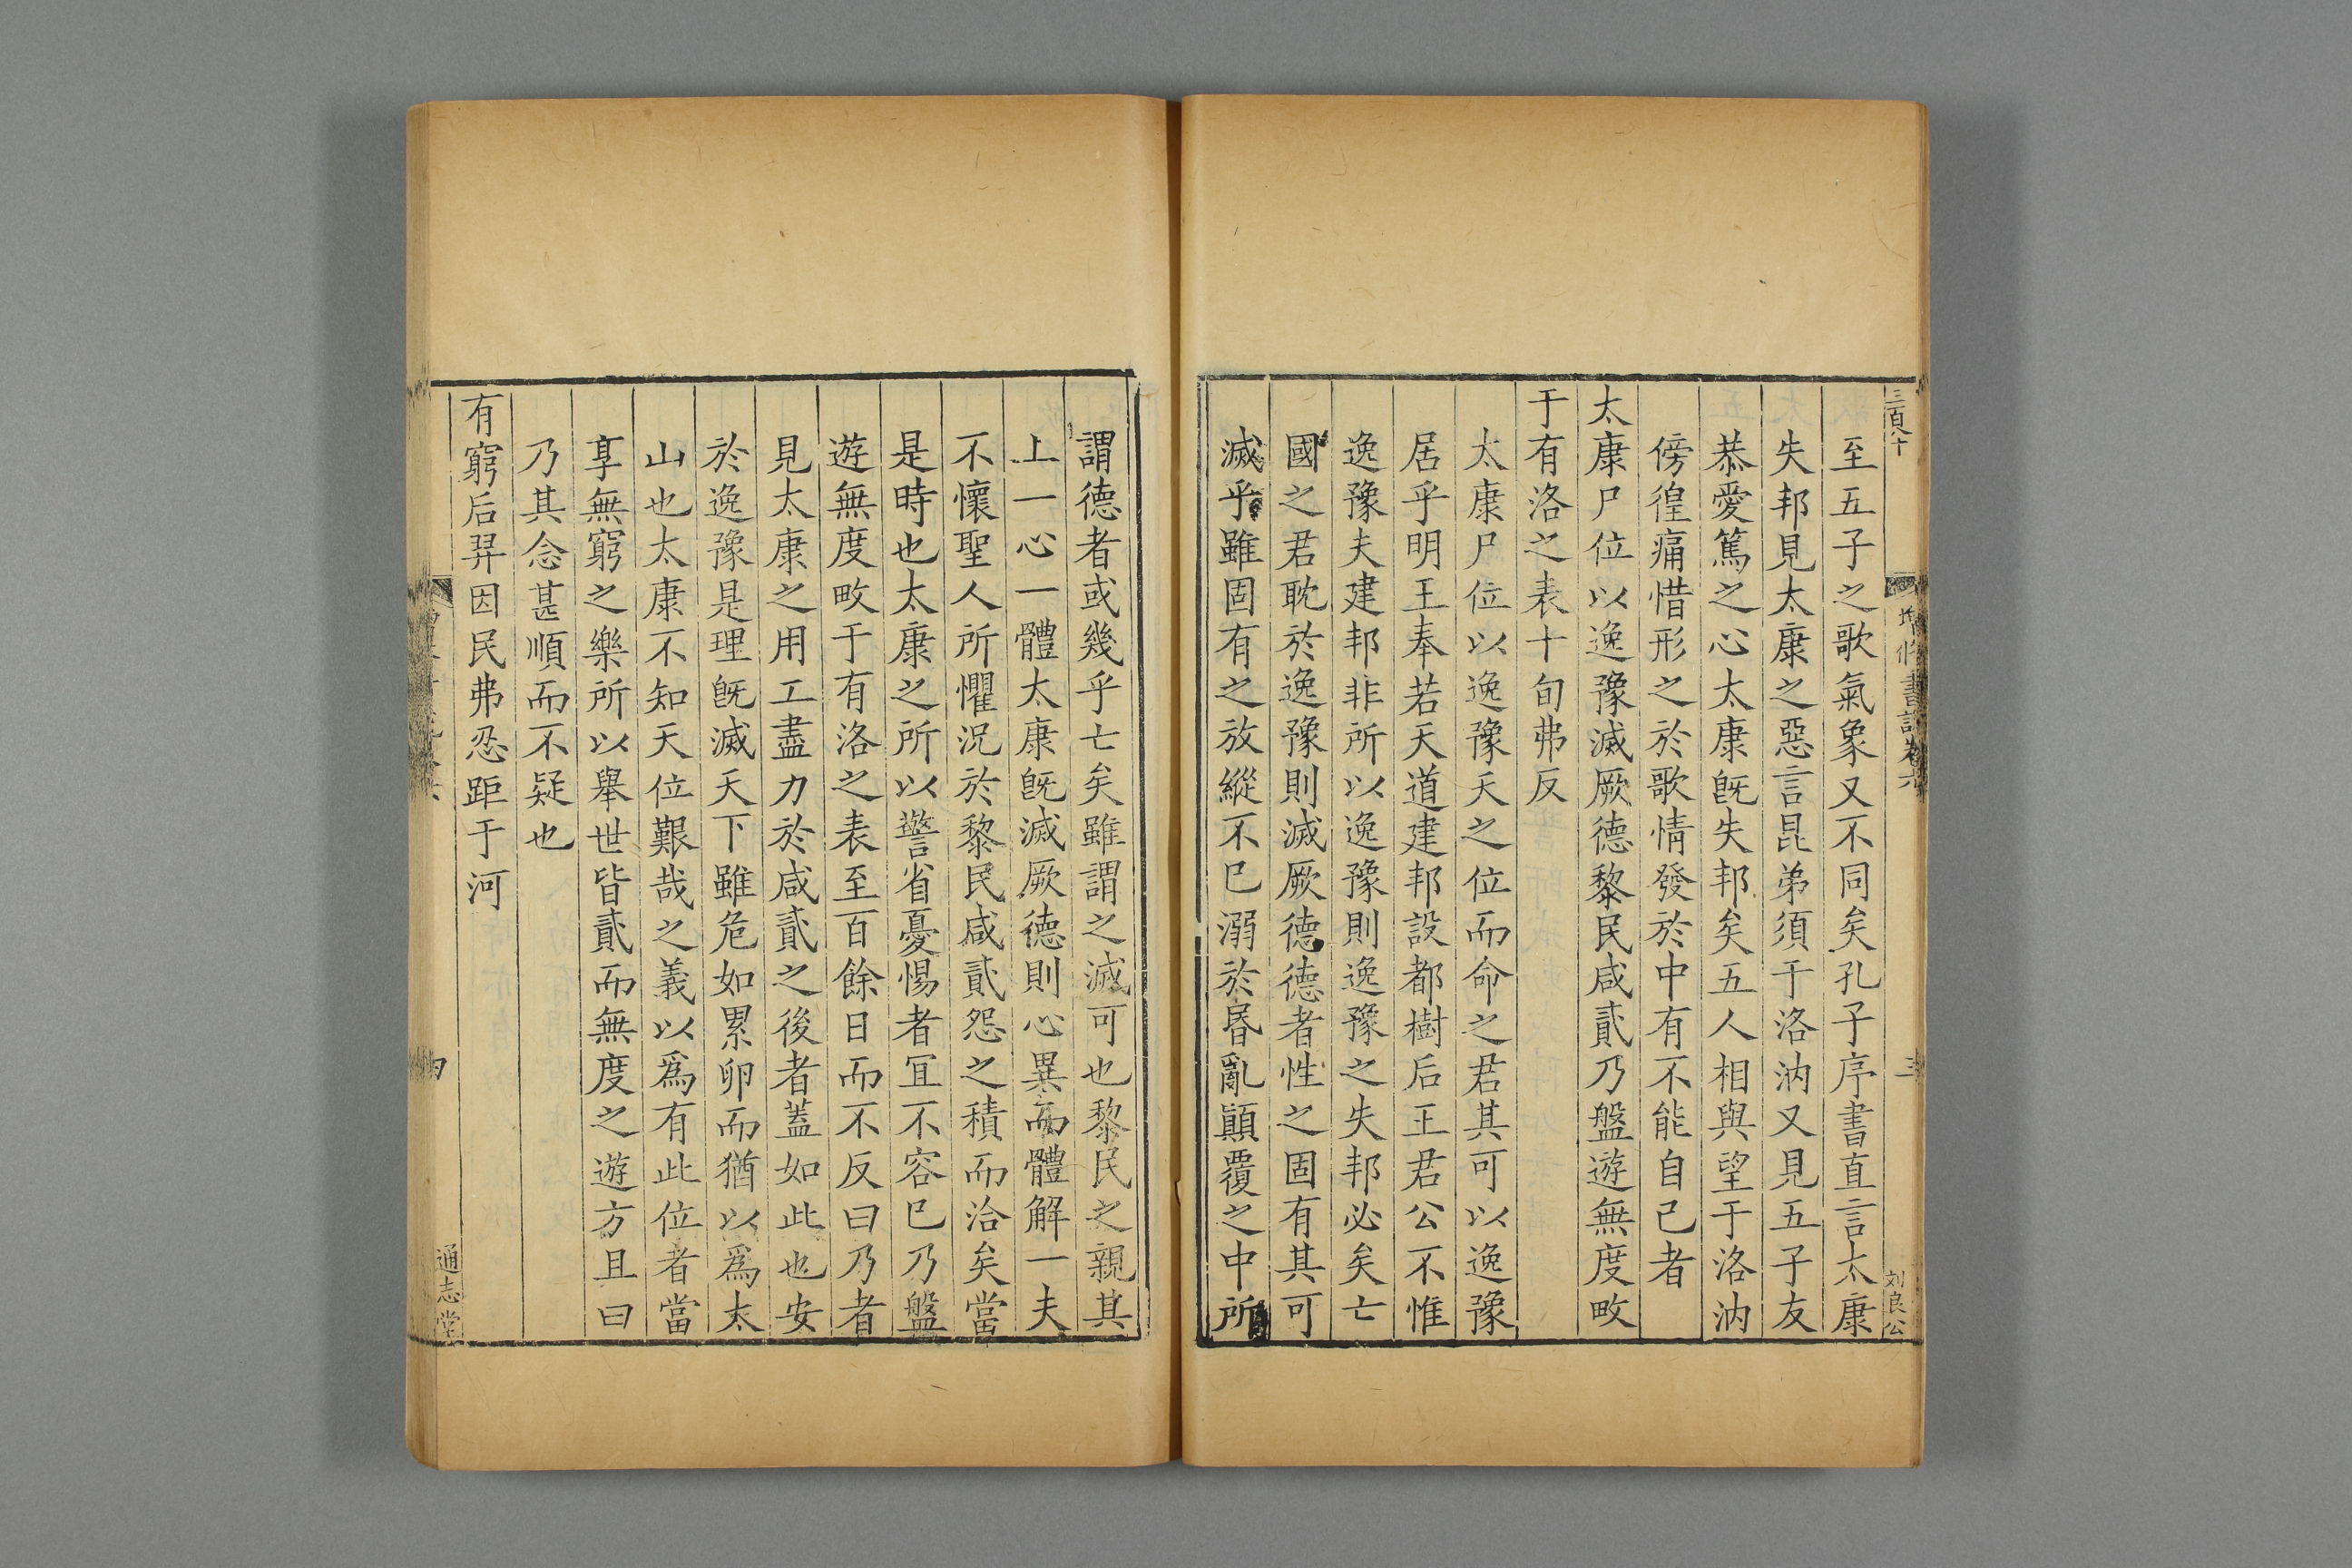 三百八十
增修書說卷六
三
刘良公
至五子之歌氣象又不同矣孔子序書直言太康
失邦見太康之惡言昆弟須于洛汭又見五子友
恭愛篤之心太康旣失邦矣五人相與望于洛汭
傍徨痛惜形之於歌情發於中有不能自己者
太康尸位以逸豫滅厥德黎民咸貳乃盤遊無度畋
于有洛之表十旬弗反
太康尸位以逸豫天之位而命之君其可以逸豫
居乎明王奉若天道建邦設都樹后王君公不惟
逸豫夫建邦非所以逸豫則逸豫之失邦必矣亡
國之君耽於逸豫則滅厥德德者性之固有其可
滅乎雖固有之放縱不已溺於昏亂顚覆之中所
謂德者或幾乎亡矣雖謂之滅可也黎民之親其
上一心一體太康旣滅厥德則心異而體解一夫
不懷聖人所懼況於黎民咸貳怨之積而洽矣當
是時也太康之所以警省憂惕者宜不容已乃盤
遊無度畋于有洛之表至百餘日而不反曰乃者
見太康之用工盡力於咸貳之後者蓋如此也安
於逸豫是理旣滅天下雖危如累卵而猶以爲太
山也太康不知天位艱哉之義以爲有此位者當
享無窮之樂所以舉世皆貳而無度之遊方且曰
乃其念甚順而不疑也
有窮后羿因民弗忍距于河
四
通志堂